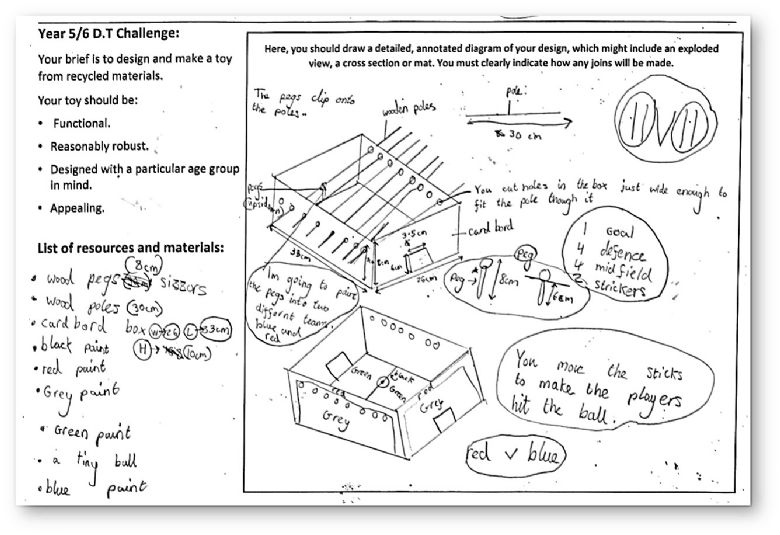 Year 5/6 D.T Challenge:
Your brief is to design and make a toy
from recycled materials.
Your toy should be:
• Functional.
• Reasonably robust.
• Designed with a particular age group
in mind.
• Appealing.
List of resources and materials:
(8cm)
• wood pegs sizzors
• wood poles (30cm)
• card bord box L → 33cm
H → (10cm)
• black paint
• red paint
• Grey paint
• Green paint
• a tiny ball
• blue paint
Here, you should draw a detailed, annotated diagram of your design, which might include an exploded
view, a cross section or mat. You must clearly indicate how any joins will be made.
The pegs clip onto
the poles.
wooden poles
pole:
30 cm
11 V 11
pegs
You cut holes in the box just wide enough to
fit the pole though it
card bord
3.5cm
33cm
26cm
peg
Peg →
8cm
6cm
1 Goal
4 defence
4 midfield
2 strickers
I'm going to paint
the pegs into two
differnt teams.
blue and
red
Green
black
Green
red
red
Grey
Grey
You move the sticks
to make the players
hit the ball.
red v blue